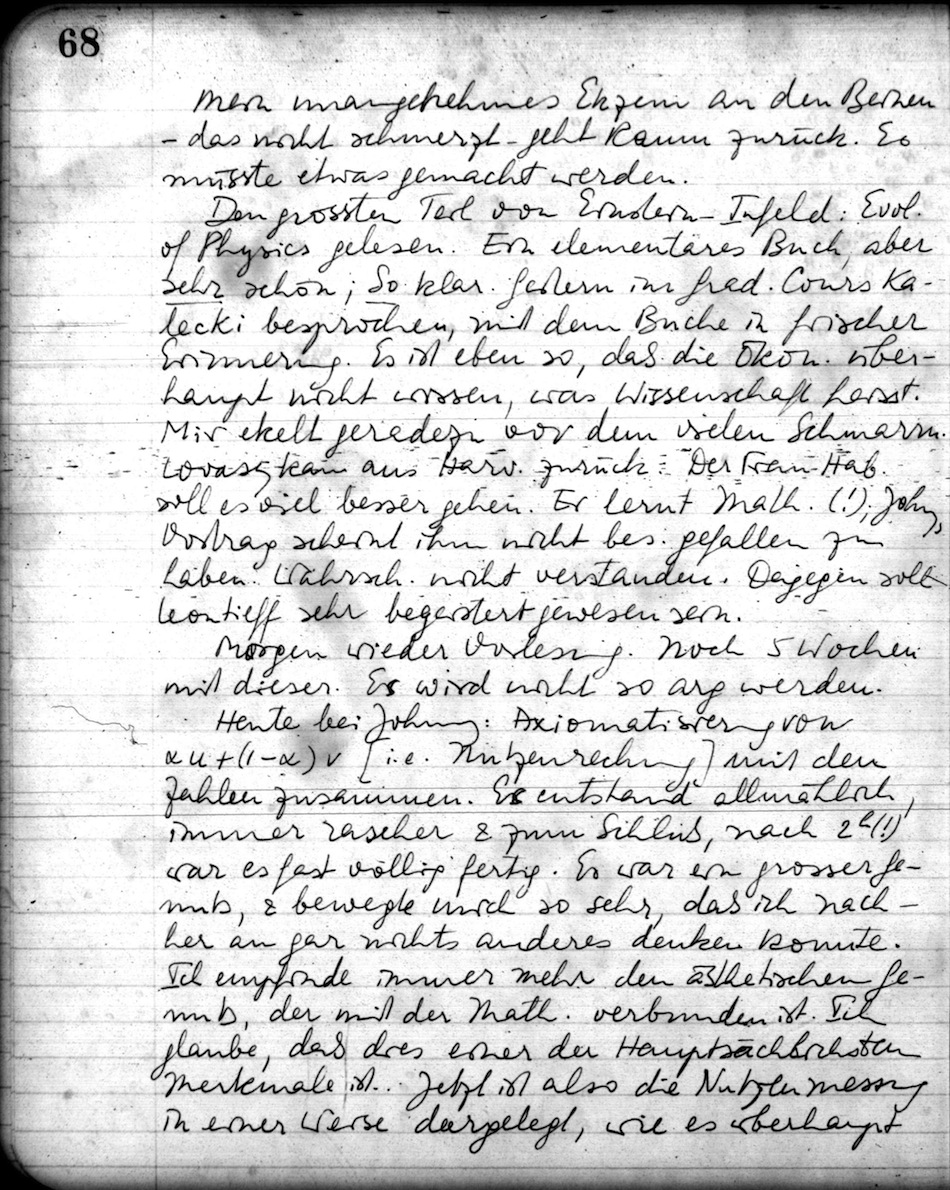 68
Mein unangenehmes Ekzem an den Beinen
– das nicht schmerzt – geht kaum zurück. Es
müsste etwas gemacht werden.
Den grossten Teil von Einstein – Infeld: Evol.
of Physics gelesen. Ein elementares Buch, aber
sehr schön; So klar. Gestern im Grad. Cours Ka-
lecki besprochen, mit dem Buche in frischer
Erinnerung. Es ist eben so, daß die Ökon. über-
haupt nicht wissen, was Wissenschaft heisst.
Mir ekelt geradezu vor dem vielen Schmarrn.
Lovasy kam aus Harv. zurück. Der Frau Hab.
soll es viel besser gehen. Er lernt Math. (!); Johnys
Vortrag scheint ihm nicht bes. gefallen zu
haben. Wahrsch. nicht verstanden. Dagegen soll
Leontieff sehr begeistert gewesen sein.
Morgen wieder Vorlesung. Noch 5 Wochen
mit dieser. Es wird nicht so arg werden.
Heute bei Johnny: Axiomatisierung von
αu+(1–α)v [i.e. Nutzenrechnung] mit den
Zahlen zusammen. Es entstand allmählich,
immer rascher & zum Schluß, nach 2h(!)
war es fast völlig fertig. Es war ein grosser Ge-
nuß, & bewegte mich so sehr, daß ich nach-
her an gar nichts anderes denken konnte.
Ich empfinde immer mehr den ästhetischen Ge-
nuß, der mit der Math. verbunden ist. Ich
glaube, daß dies einer der Hauptsächlichsten
Merkmale ist. Jetzt ist also die Nutzenmessung
in einer Weise dargelegt, wie es überhaupt